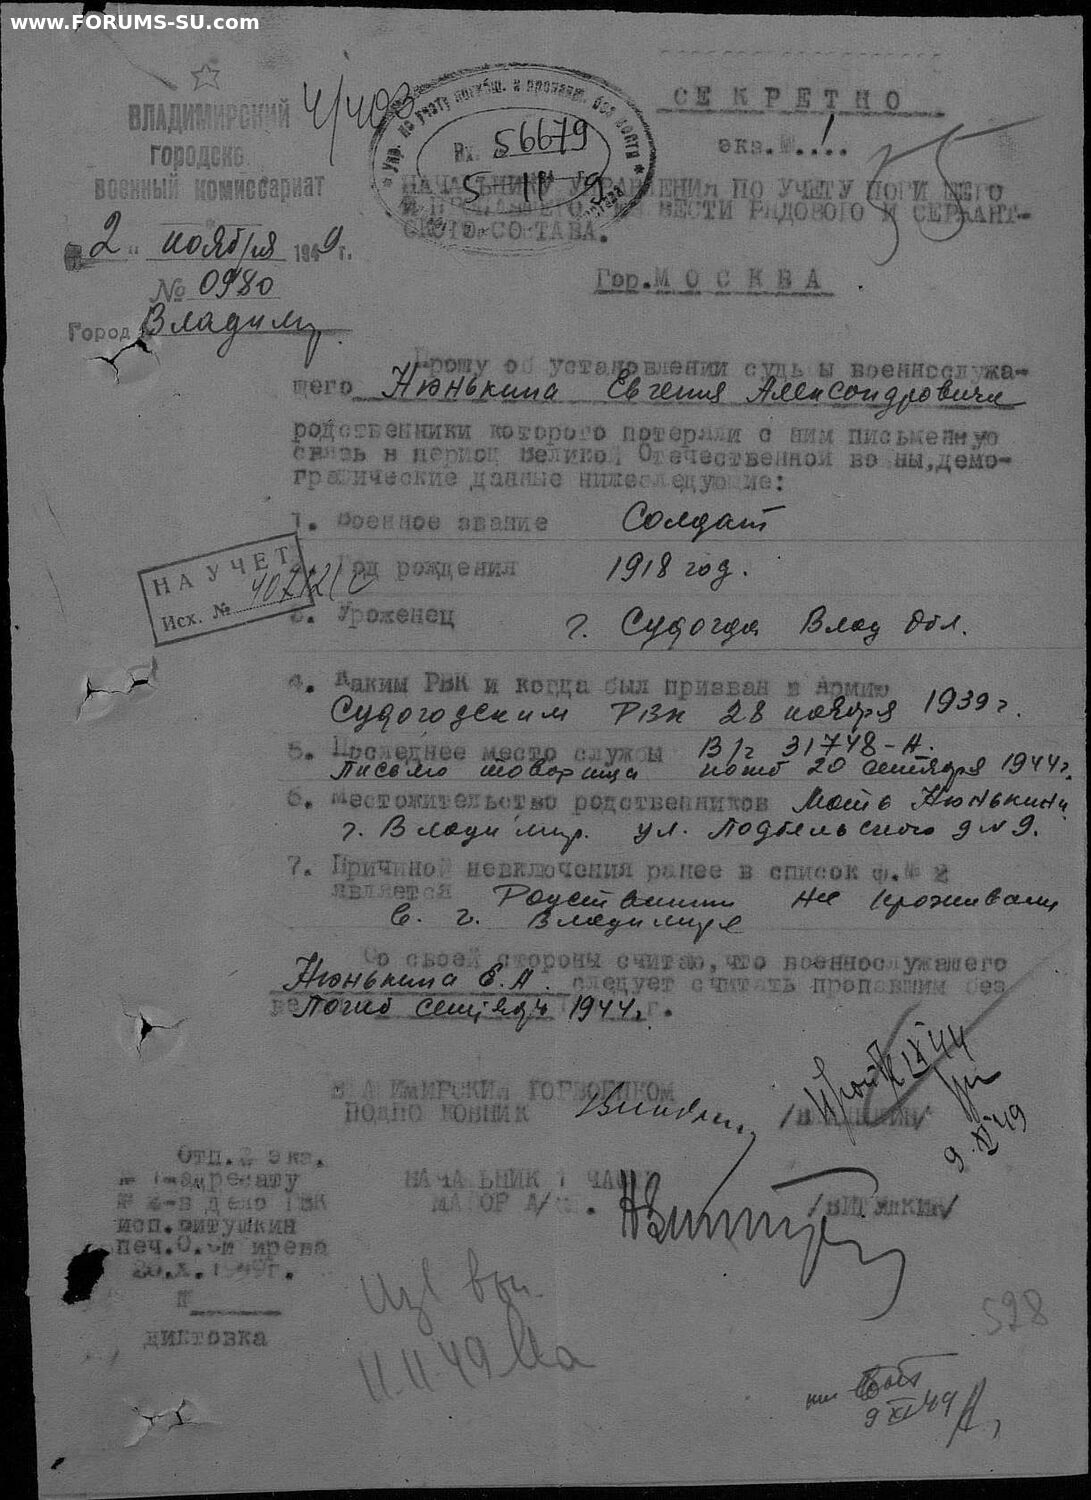 www.FORUMS-SU.com
ВЛАДИМИРСКИЙ
ГОРОДСКО
ВОЕННЫЙ КОМИССАРИАТ
2 " ноября 1949 г.
№ 0980
Город Владимир
4/403
Упр. по учету погибш. и пропавш. без вести
Вх. 56679
5 11 9
СЕКРЕТНО
экз.№ 1.
НАЧАЛЬНИКУ УПРАВЛЕНИЯ ПО УЧЕТУ ПОГИБШЕГО
И ПРОПАВШЕГО БЕЗ ВЕСТИ РЯДОВОГО И СЕРЖАНТ-
СКОГО СОСТАВА.
Гор. МОСКВА
Прошу об установлении судьбы военнослужа-
щего Нюнькина Евгения Александровича
родственники которого потеряли с ним письменную
связь в период Великой Отечественной войны, демо-
графические данные нижеследующие:
1. Военное звание Солдат
НА УЧЕТ
Исх. №
Год рождения 1918 год.
3. Уроженец г. Судогда Влад обл.
4. Каким РВК и когда был призван в Армию
Судогодским РВК 28 ноября 1939 г.
5. Последнее место службы В/ч 31748-А.
письмо товарища погиб 20 сентября 1944 г.
6. Местожительство родственников Мать Нюнькина
г. Владимир. ул. Подбельского д № 9.
7. Причиной невключения ранее в список ф.№ 2
является Родственники не проживали
в г. Владимире
Со своей стороны считаю, что военнослужащего
Нюнькина Е.А. следует считать пропавшим без
ве Погиб сентябрь 1944 г. г.
ВЛАДИМИРСКИЙ ГОРВОЕНКОМ
ПОДПОЛКОВНИК
IX 44
9.XI 49
Отп. 2 экз.
№ 1-адресату
№ 2-в дело ГВК
исп. Витушкин
печ.
20.X.1949г.
№
диктовка
НАЧАЛЬНИК 1 ЧАСТИ
МАЙОР А/СЛ. /ВИТУШКИН/
11.11.49
528
9 XI 49